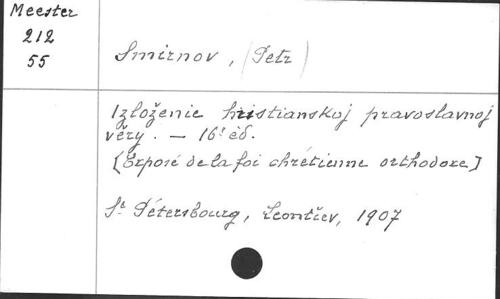 Meester
212
55
Smirnov, (Petr)
Izloženie hristianskoj pravoslavnoj
věry. — 16ᵉ éd.
[Exposé de la foi chrétienne orthodoxe]
Sᵗ Pétersbourg, Leontĭev, 1907